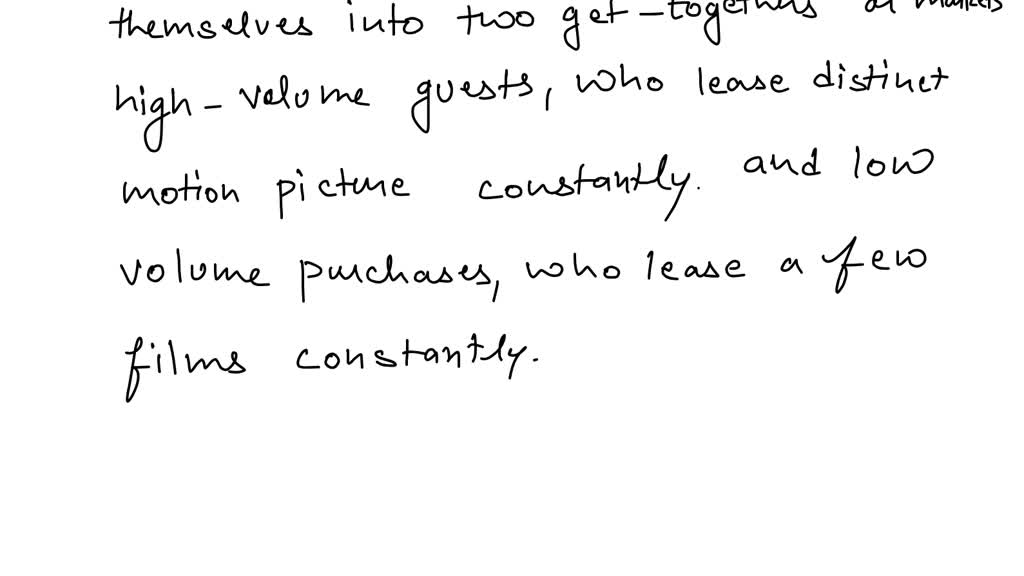 themselves into two get-togethers or markets
high-volume guests, who lease distinct
motion picture constantly. and low
volume purchases, who lease a few
films constantly.